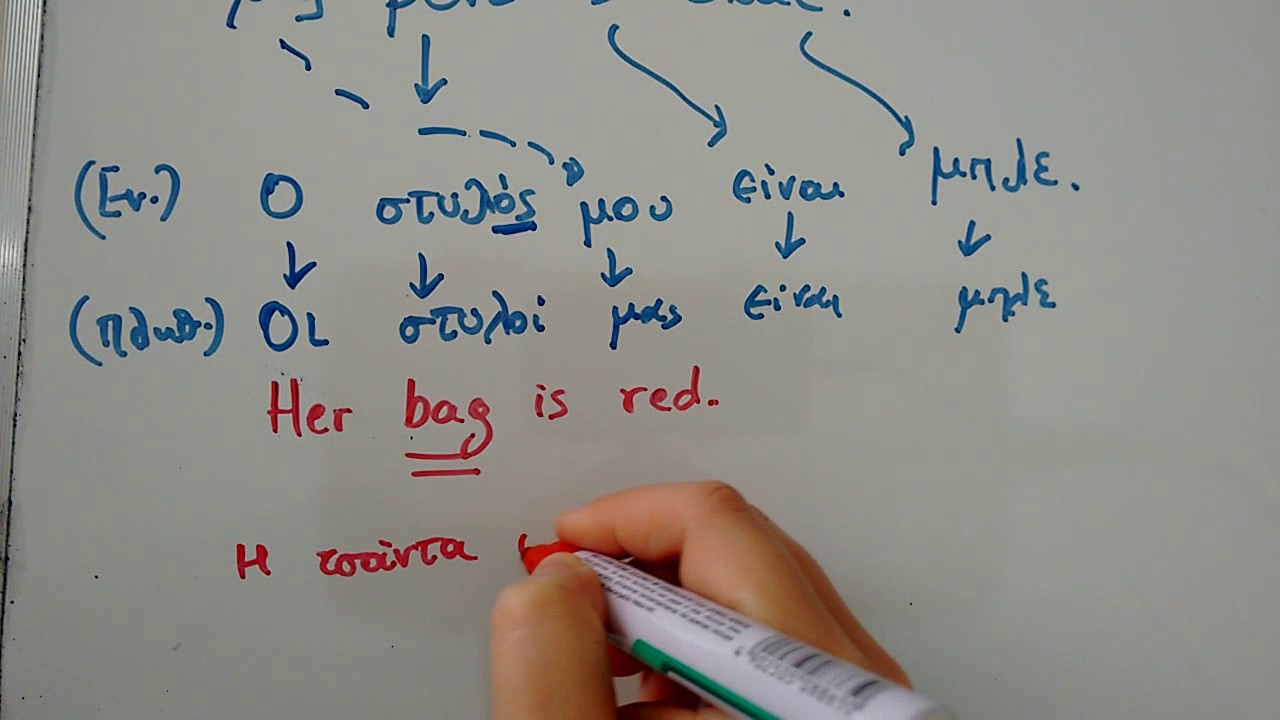 (Εν.) Ο στυλός μου είναι μπλε.
(πληθ.) Οι στυλοί μας είναι μπλε
Her bag is red.
Η τσάντα